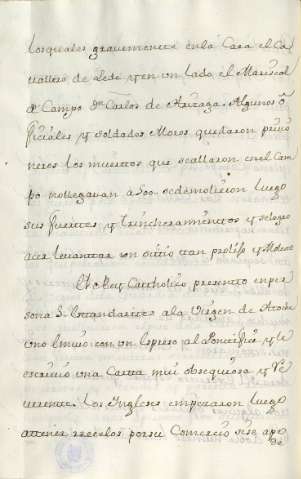 los quales gravemente en la Cara el Ca
vallero de Lede y en un lado el Mariscal
de Campo Dn Carlos de Arizaga. Algunos o
ficiales y soldados Moros quedaron pricio
neros los muertos que se allaron en el Cam
po no llegavan a 500 se demolieron luego
sus fuertes y trincheramientos y se logro
acer levantar un citio tan prolijo y Molesto
El Rey Catholico presento en per
sona 3 Estandartes a la Virgen de Atocha
uno Envio con un Espreso al Pontifice y le
escrivio una Carta mui obsequiosa y Re
verente. Los Ingleses empezaron luego
a tener recelos por su Comercio si se apo
de